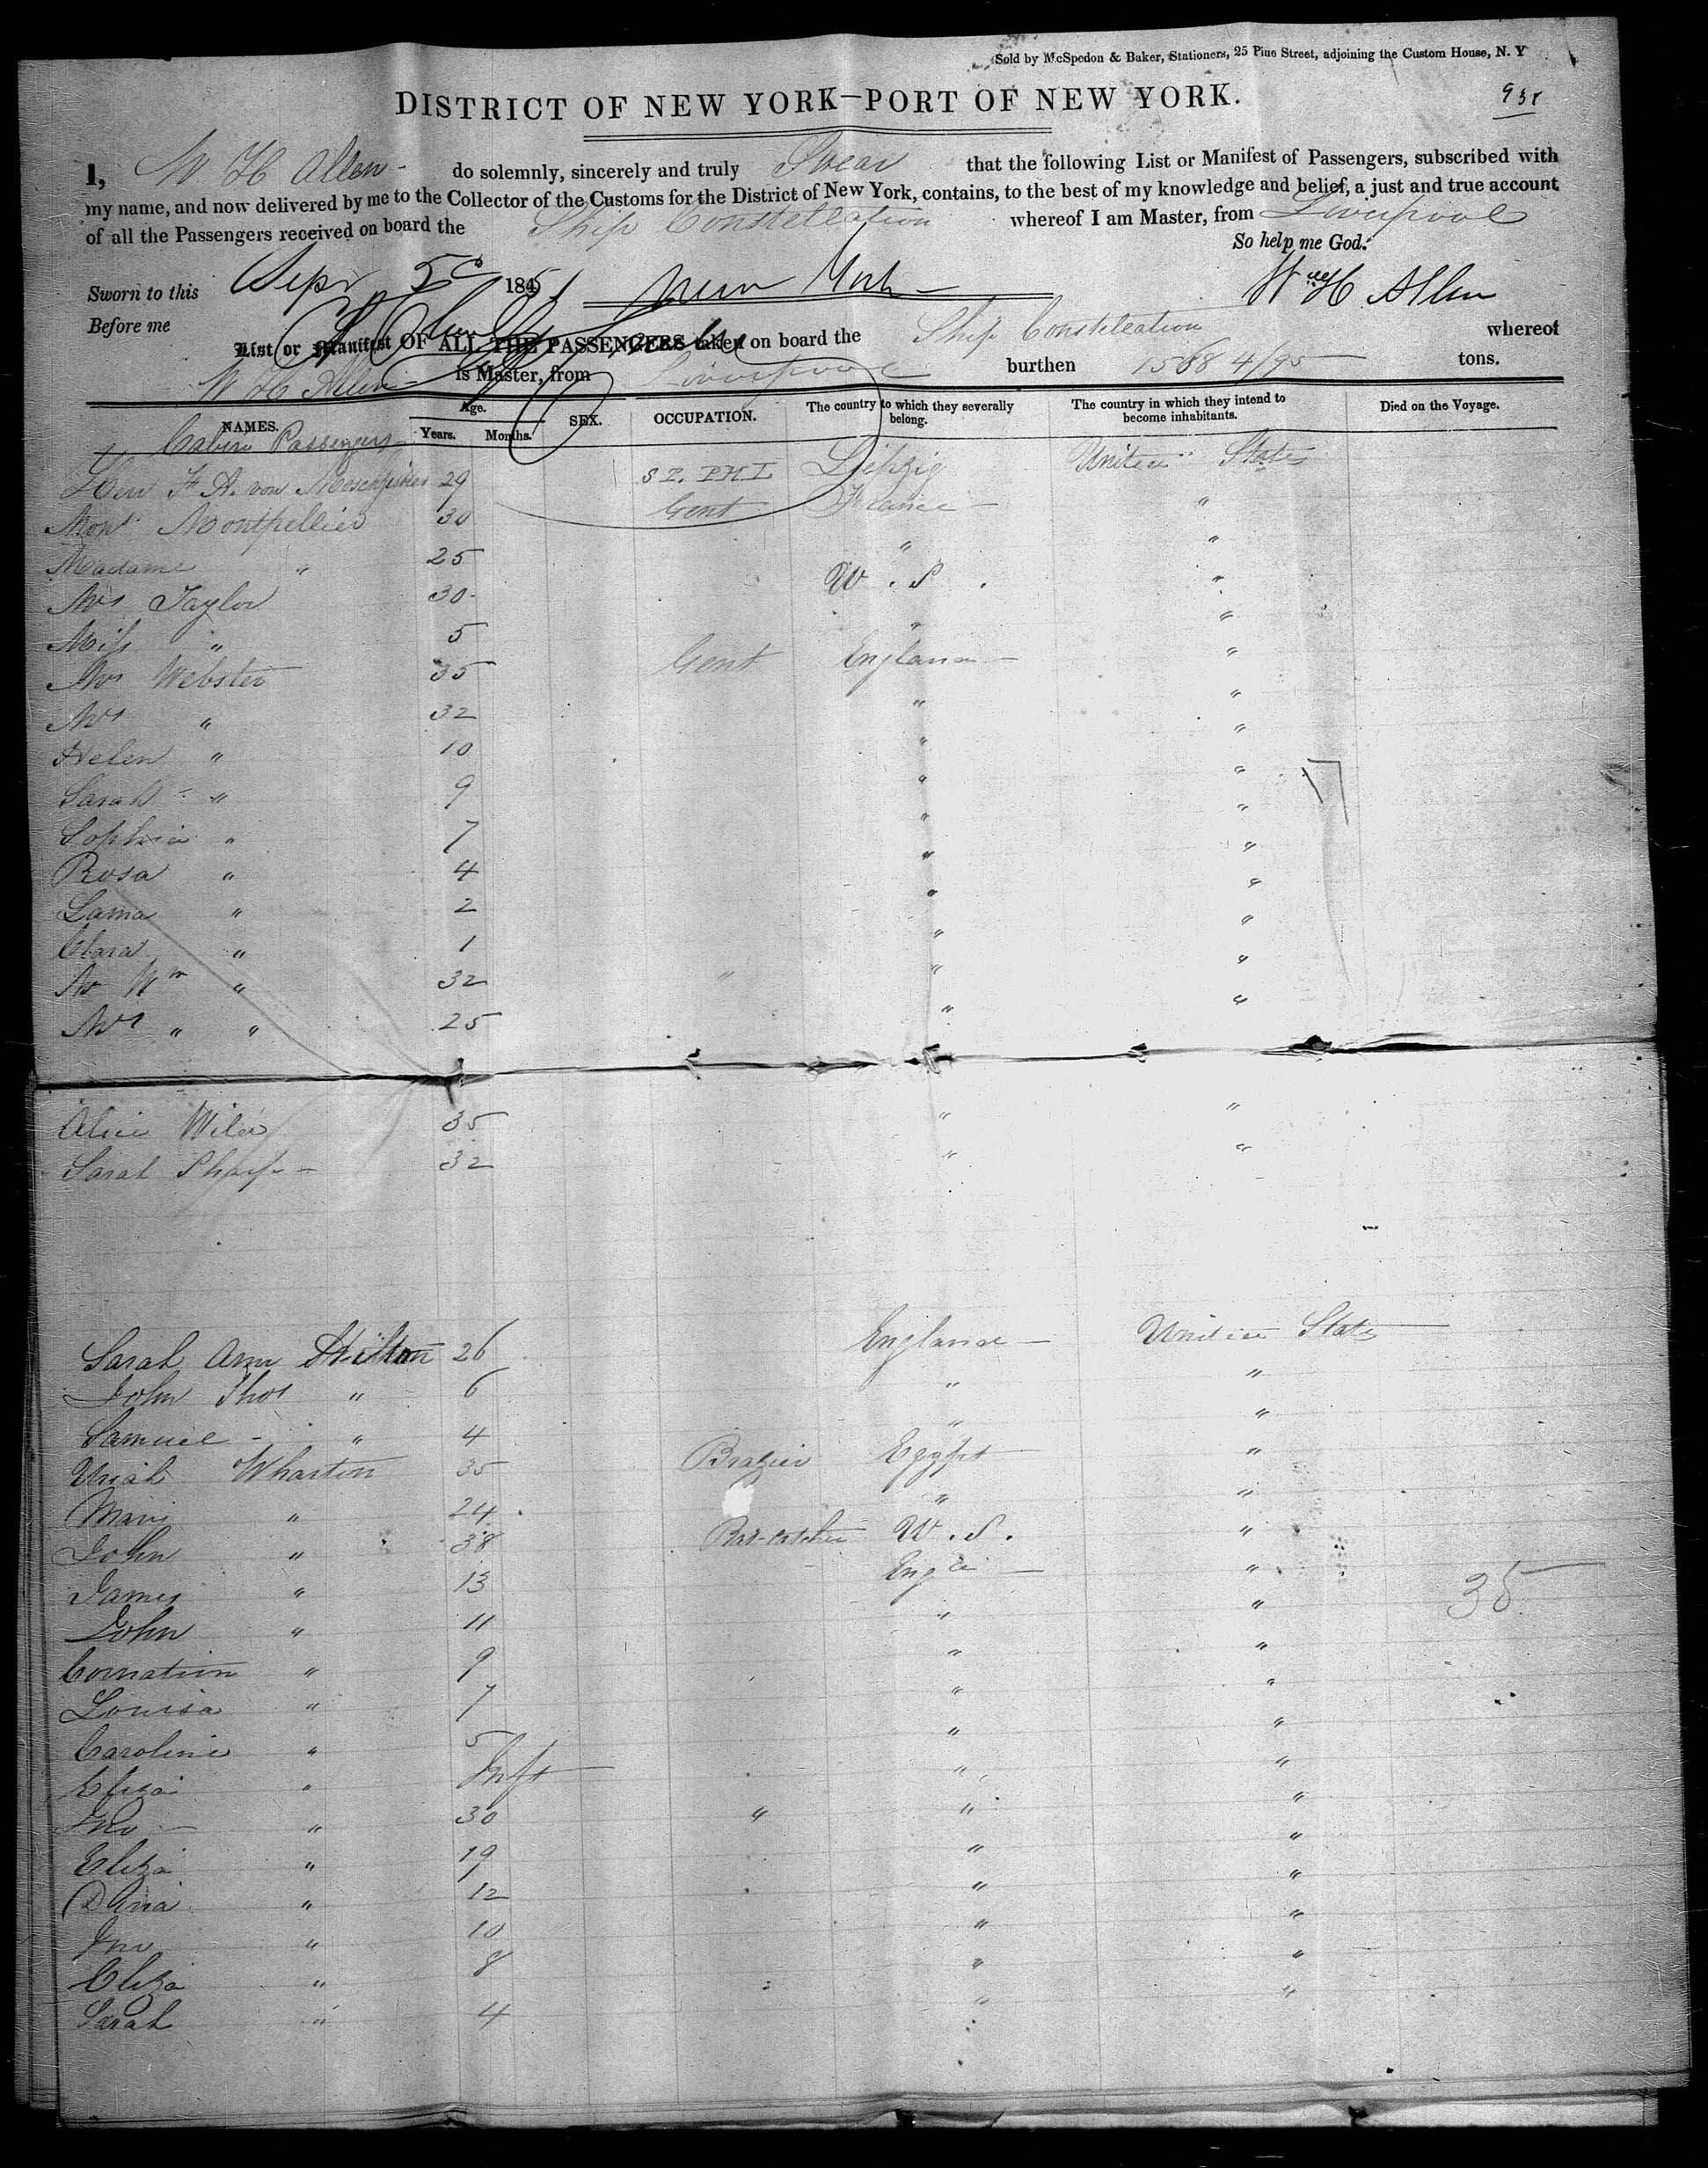 Sold by McSpedon & Baker, Stationers, 25 Pine Street, adjoining the Custom House, N. Y
DISTRICT OF NEW YORK—PORT OF NEW YORK.
I, W H Allen do solemnly, sincerely and truly Swear that the following List or Manifest of Passengers, subscribed with
my name, and now delivered by me to the Collector of the Customs for the District of New York, contains, to the best of my knowledge and belief, a just and true account
of all the Passengers received on board the Ship Constellation whereof I am Master, from Liverpool
So help me God.
Sworn to this Sepr 5 1851 New York Wm H Allen
Before me
List or Manifest OF ALL THE PASSENGERS taken on board the Ship Constellation whereof
W H Allen is Master, from Liverpool burthen 1568 4/95 tons.
NAMES. Age. Years. Months. SEX. OCCUPATION. The country to which they severally belong. The country in which they intend to become inhabitants. Died on the Voyage.
Cabin Passengers
Herr F. A. von 29 Leipzig United States
Monr Montpellier 30 Gent France "
Madame " 25 " "
Mrs Taylor 30 U. S. "
Miss " 5 " "
Mr Webster 35 Gent England "
Mrs " 32 " "
Helen " 10 " "
Sarah " 9 " "
Sophia " 7 " "
Rosa " 4 " "
" 2 " "
Clara " 1 " "
Mr Wm " 32 " " "
Mrs " " 25 " "
Alice 35 " "
Sarah Sharp 32 " "
Sarah Ann Hilton 26 England United States
John Thos " 6 " "
Samuel " 4 " "
Uriah Wharton 35 Brazier Egypt "
" 24 " "
John " 38 U. S. "
James " 13 Engd "
John " 11 " "
" 9 " "
Louisa " 7 " "
Caroline " 5 " "
Eliza " Inft " "
Jno " 30 " " "
Eliza " 19 " "
" 12 " "
Jno " 10 " "
Eliza " 8 " "
Sarah " 4 " "